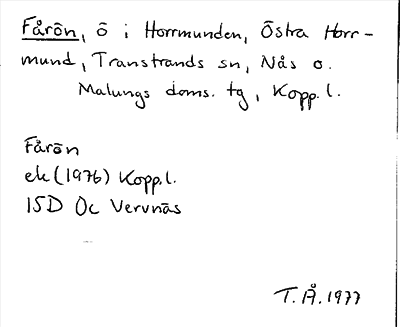 Fårön, ö i Horrmunden, Östra Horr-
mund, Transtrands sn, Nås o.
Malungs doms. tg, Kopp.l.
Fårön
ek (1976) Kopp.l.
15D Oc Vervnäs
T.Å. 1977